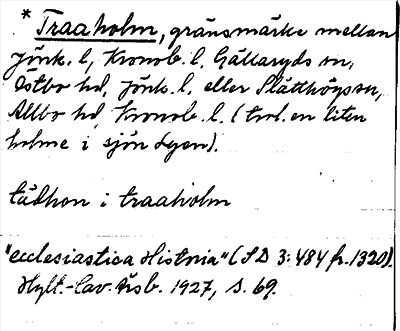 * Traaholm, gränsmärke mellan
Jönk. l, Kronob. l. Gällaryds sn,
Östbo hd, Jönk. l. eller Slätthögs sn,
Allbo hd, Kronob. l. (trol. en liten
holme i sjön Lyen).
tüdhon i traaholm
"Ecclesiastica Historia" (SD 3: 484 fr. 1320).
Hylt.-Cav. Årsb. 1927, s. 69.